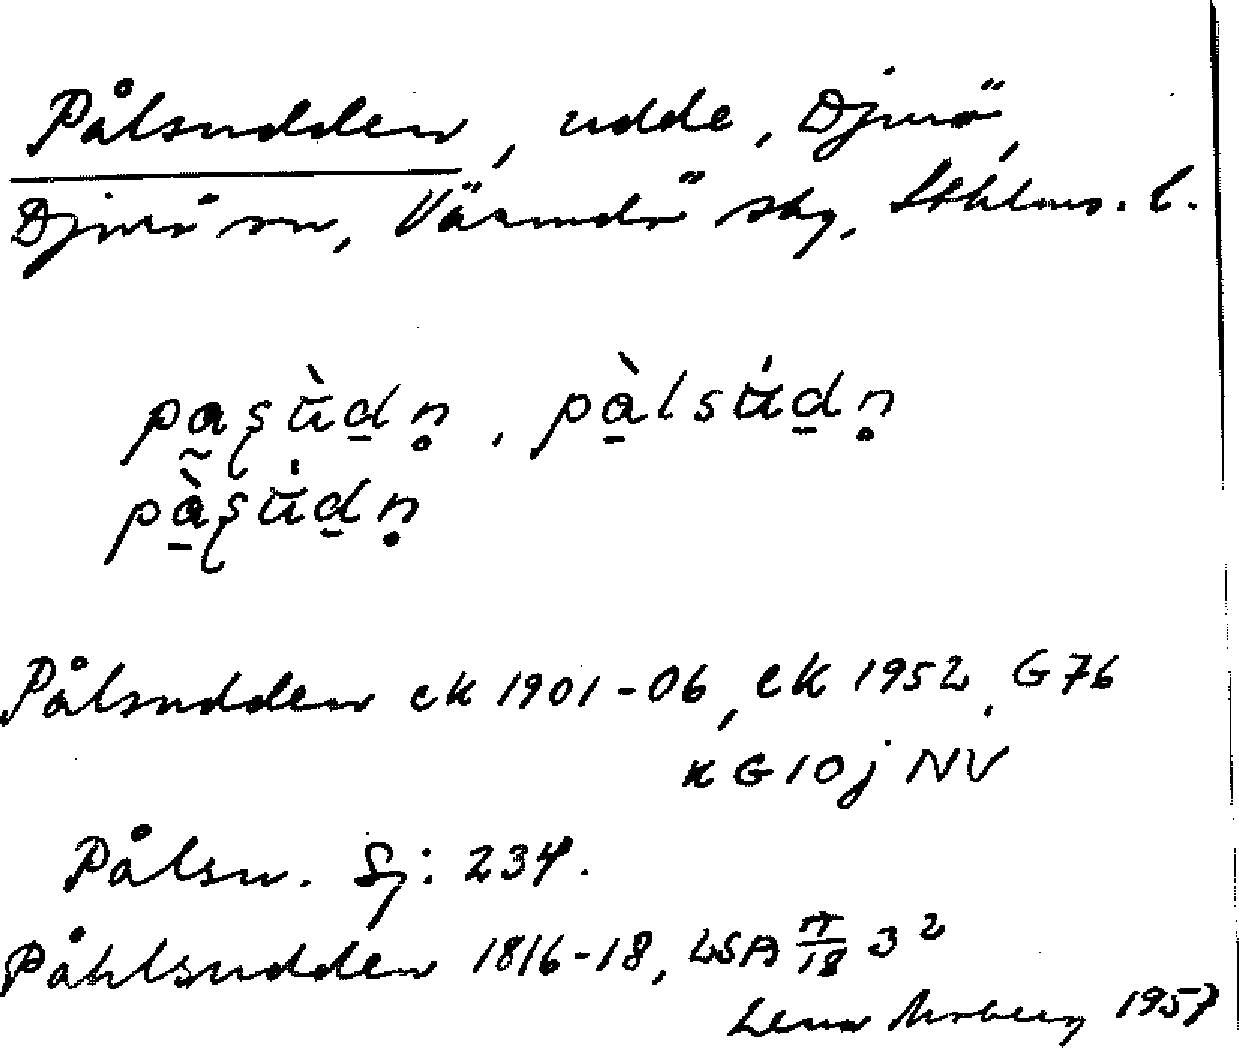 Pålsudden, udde, Djurö,
Djurö sn, Värmdö skg, Sthlms. l.
pa̰ʂùdn̥, pàlsúdn̥
pàʂúdn̥
Pålsudden ek 1901-06, ek 1952, G76
k G10j NV
Pålsu. Sj: 234.
Påhlsudden 1816-18, LSA π/18 3²
Lena 1957